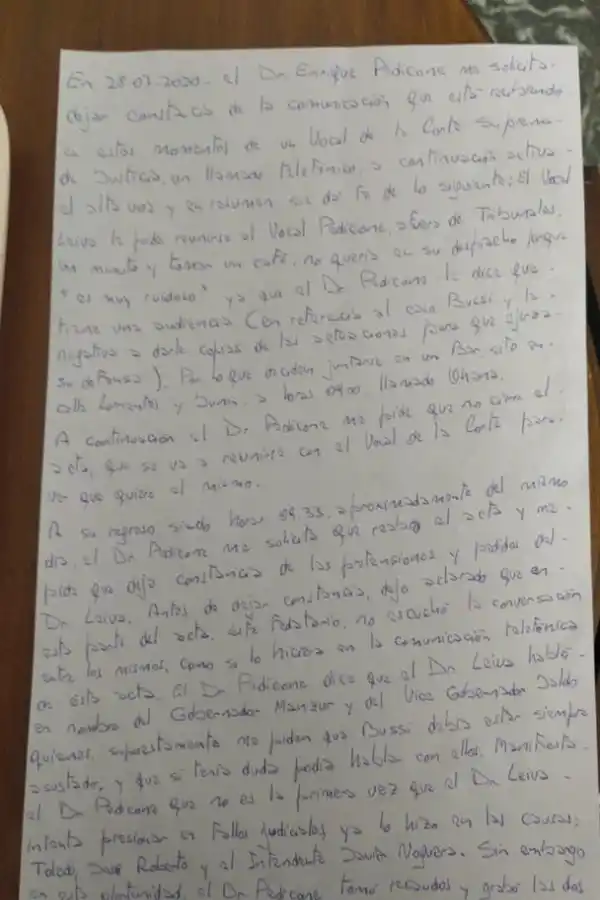 En 28-07-2020- el Dr. Enrique Pedicone me solicita-
dejar constancia de la comunicación que está recibiendo
en estos momentos de un Vocal de la Corte Suprema-
de Justicia, un llamado telefónico, a continuación activa-
el alta voz y en resumen se da fe de lo siguiente: El Vocal
Leiva le pide reunirse al Vocal Pedicone, afuera de Tribunales,
un minuto y tomen un café, no quería en su despacho porque
"es muy ruidoso" ya que el Dr. Pedicone le dice que-
tiene una audiencia (en referencia al caso Bussi y la-
negativa a darle copias de las actuaciones para que ejerza-
su defensa). Por lo que deciden juntarse en un Bar sito en-
calle Lamadrid y Junin, a horas 09:00 llamado Ohana.
A continuación el Dr. Pedicone me pide que no cierre el-
acta, que se va a reunirse con el Vocal de la Corte para-
ver que quiere el mismo.
A su regreso siendo horas 09:33, aproximadamente del mismo
día, el Dr. Pedicone me solicita que reabra el acta y me-
pide que deje constancia de las pretensiones y pedidos del-
Dr. Leiva. Antes de dejar constancia, dejo aclarado que en-
esta parte del acta, este Fedatario, no escuchó la conversación
entre los mismos, como si lo hiciera en la comunicación telefónica
de esta acta. El Dr. Pedicone dice que el Dr. Leiva habló-
en nombre del Gobernador Manzur y del Vice Gobernador Jaldo
quienes, supuestamente me piden que Bussi debía estar siempre
asustado, y que si tenía duda podía hablar con ellos. Manifiesta-
el Dr. Pedicone que no es la primera vez que el Dr. Leiva-
intenta presionar en Fallos judiciales, ya lo hizo en las causas;
Toledo, José Roberto y al Intendente Javier Noguera. Sin embargo
en esta oportunidad, el Dr. Pedicone tomó recaudos y grabó las dos